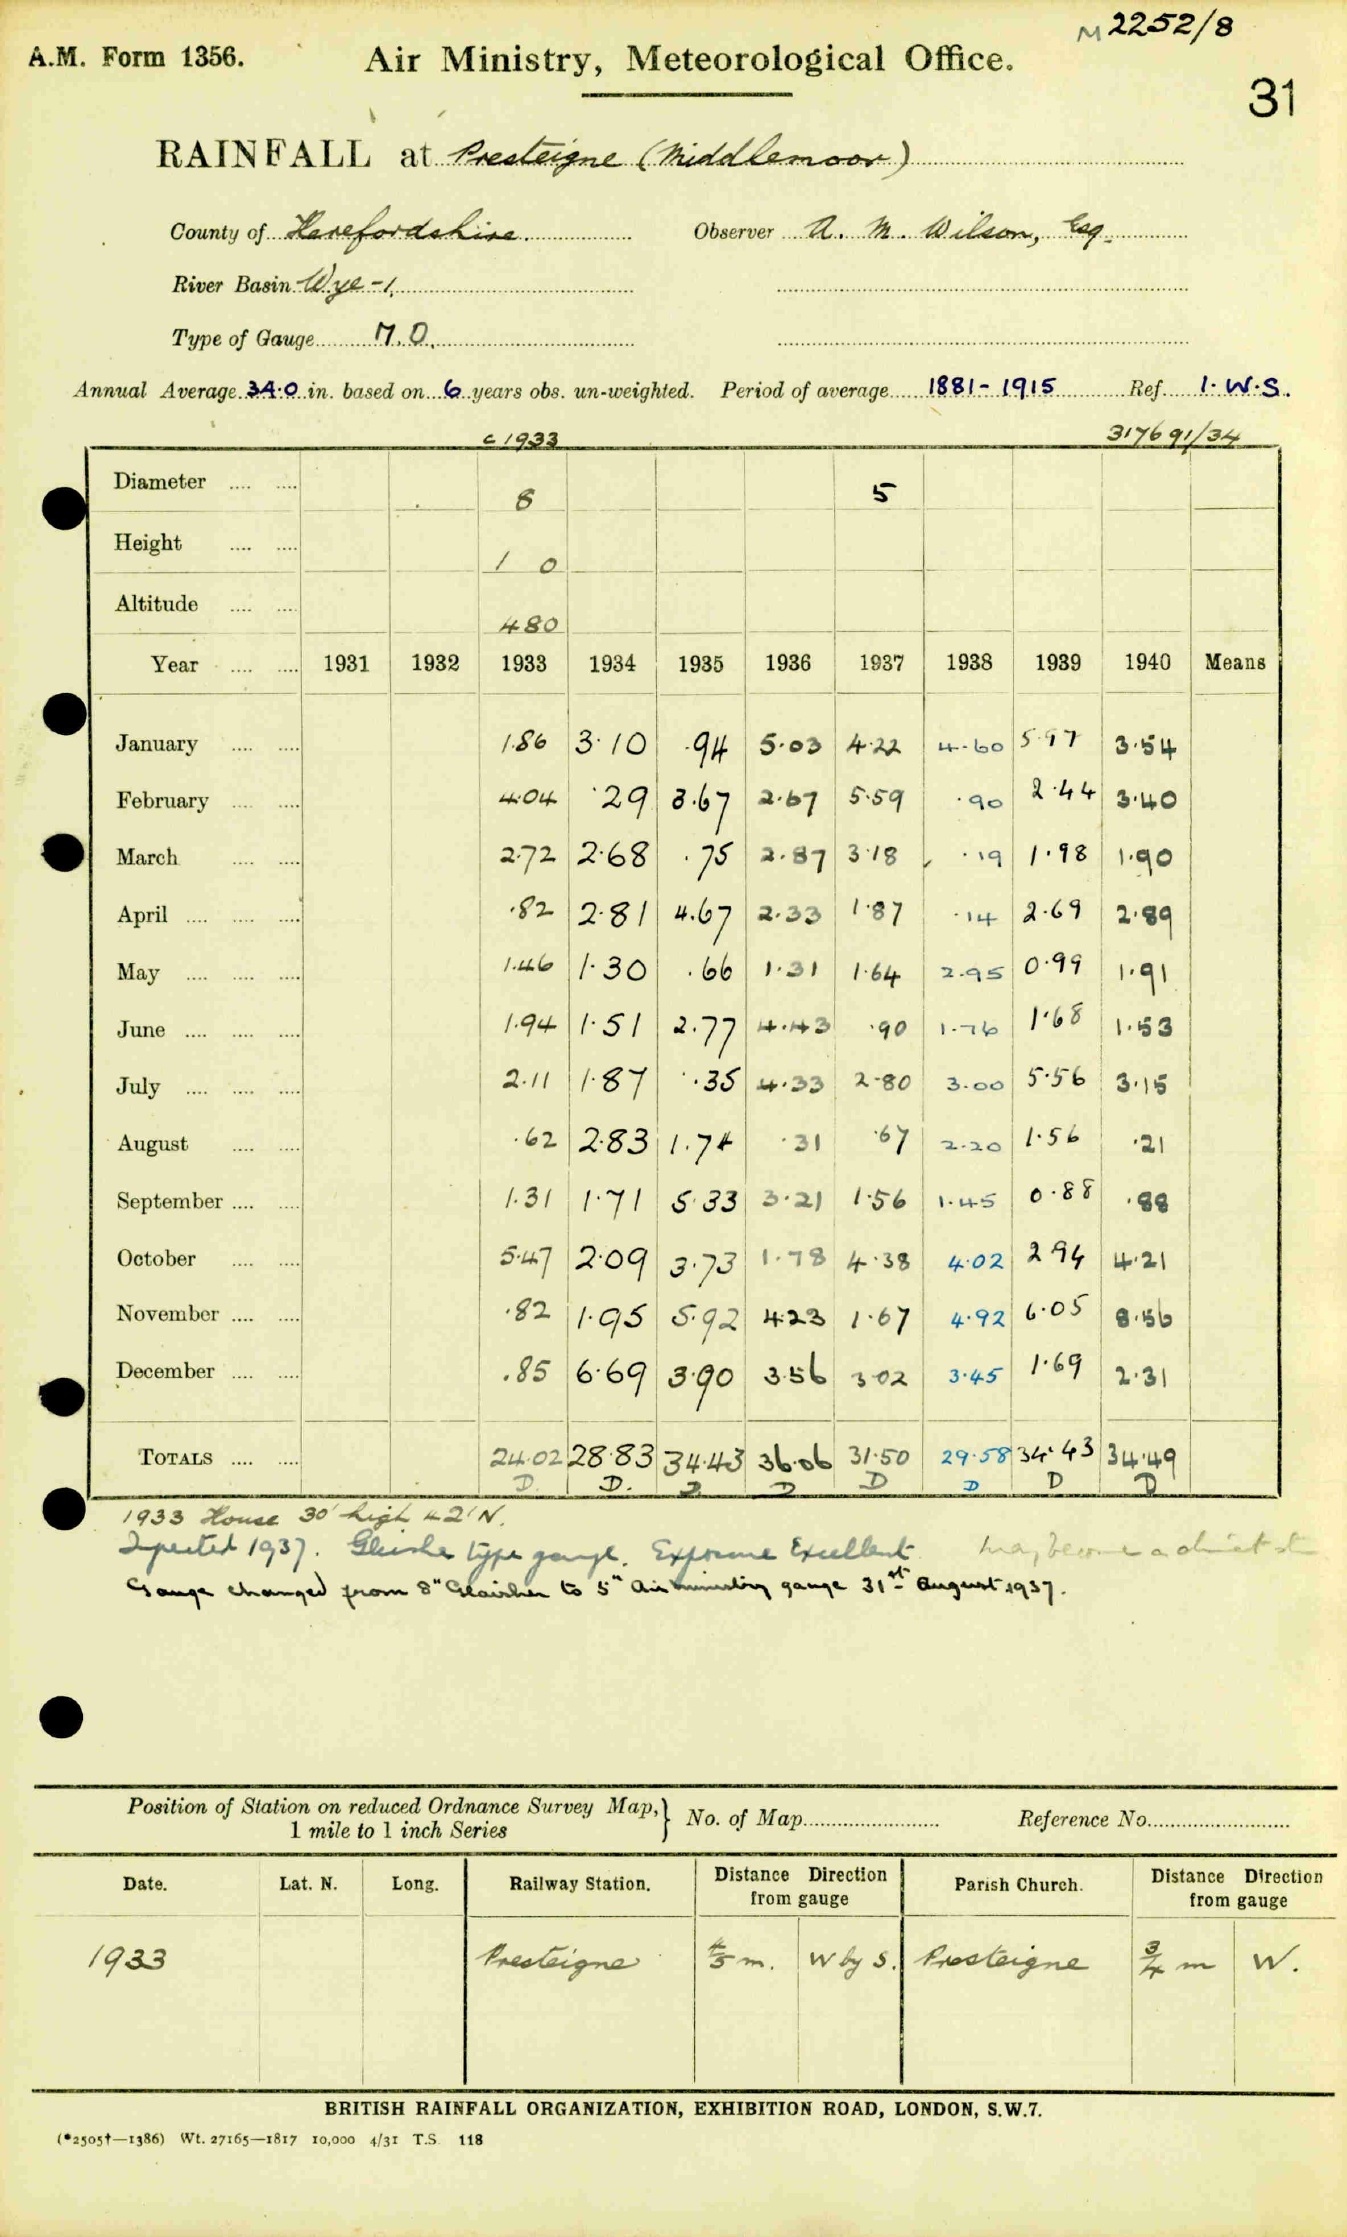 M2252/8
A.M. Form 1356. Air Ministry, Meteorological Office.
31
RAINFALL at Presteigne (Middlemoor)
County of Herefordshire. Observer A. M. Wilson, Esq.
River Basin Wye-1.
Type of Gauge M.O.
Annual Average 34.0 in. based on 6 years obs. un-weighted. Period of average 1881-1915 Ref. I.W.S.
c 1933 317691/34
Diameter 8 5
Height 1 0
Altitude 480
Year 1931 1932 1933 1934 1935 1936 1937 1938 1939 1940 Means
January 1.86 3.10 .94 5.03 4.22 4.60 5.97 3.54
February 4.04 .29 3.67 2.67 5.59 .90 2.44 3.40
March 2.72 2.68 .75 2.87 3.18 .19 1.98 1.90
April .82 2.81 4.67 2.33 1.87 .14 2.69 2.89
May 1.46 1.30 .66 1.31 1.64 2.95 0.99 1.91
June 1.94 1.51 2.77 4.43 .90 1.76 1.68 1.53
July 2.11 1.87 .35 4.33 2.80 3.00 5.56 3.15
August .62 2.83 1.74 .31 .67 2.20 1.56 .21
September 1.31 1.71 5.33 3.21 1.56 1.45 0.88 .88
October 5.47 2.09 3.73 1.78 4.38 4.02 2.94 4.21
November .82 1.95 5.92 4.23 1.67 4.92 6.05 8.56
December .85 6.69 3.90 3.56 3.02 3.45 1.69 2.31
TOTALS 24.02 28.83 34.43 36.06 31.50 29.58 34.43 34.49
D. D. D D D D D D
1933 House 30' high 42' N.
Inspected 1937. Glaisher type gauge. Exposure Excellent may become a climat stn
Gauge changed from 8" Glaisher to 5" Air Ministry gauge 31st August 1937.
Position of Station on reduced Ordnance Survey Map, } No. of Map Reference No.
1 mile to 1 inch Series
Date. Lat. N. Long. Railway Station. Distance Direction from gauge Parish Church. Distance Direction from gauge
1933 Presteigne 4/5 m. W by S. Presteigne 3/4 m W.
BRITISH RAINFALL ORGANIZATION, EXHIBITION ROAD, LONDON, S.W.7.
(*2505†—1386) Wt. 27165—1817 10,000 4/31 T.S. 118